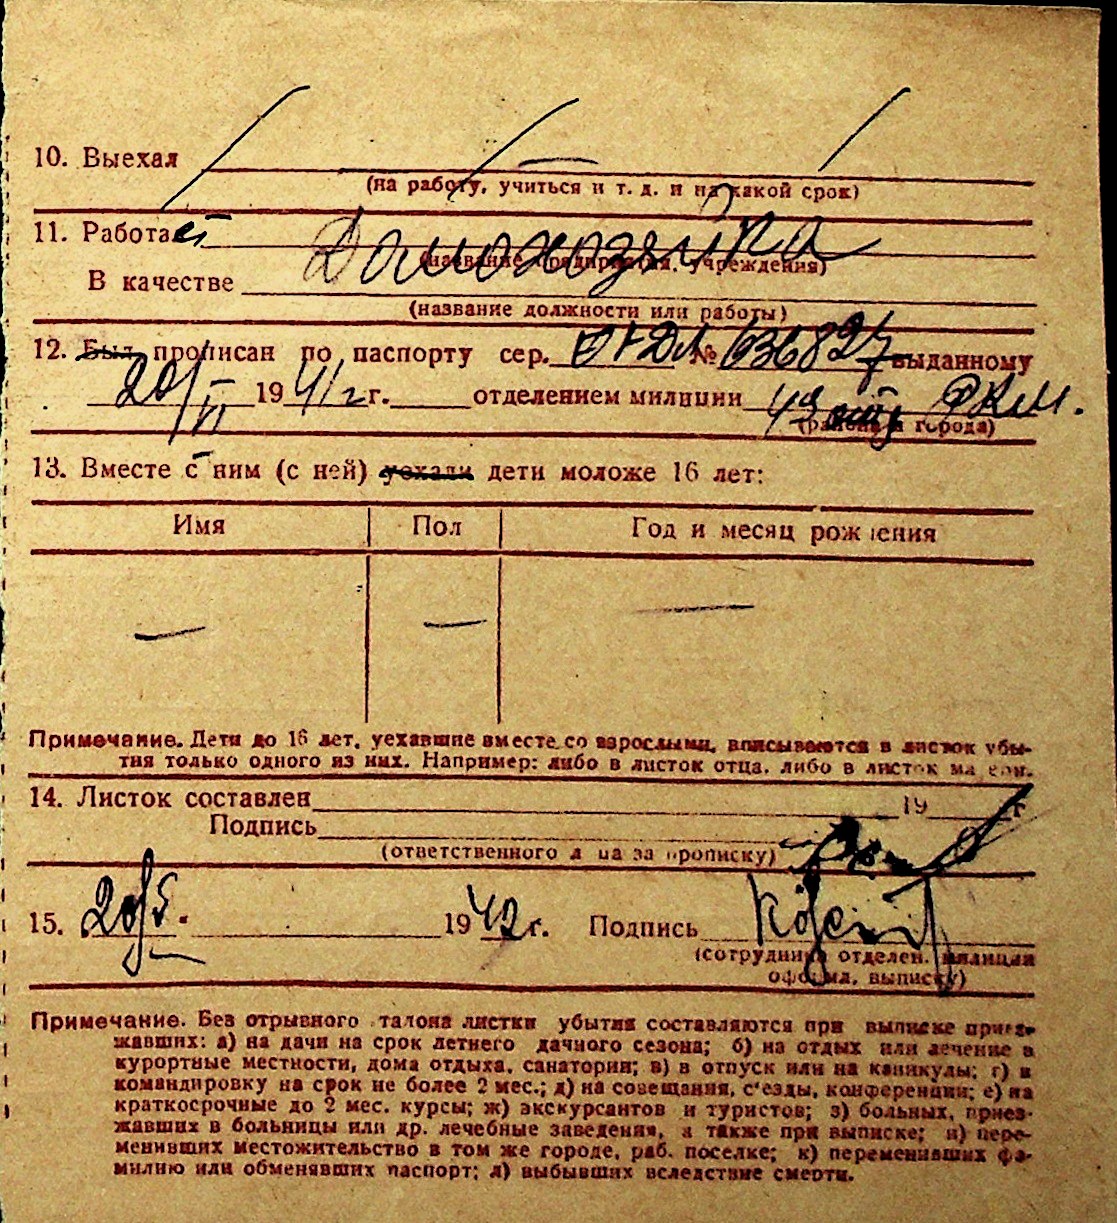 10. Выехал
(на работу, учиться и т. д. и на какой срок)
11. Работает Домохозяйка
(название предприятия, учреждения)
В качестве
(название должности или работы)
12. Был прописан по паспорту сер. № 636827 выданному
20/VI 1941 г. отделением милиции 43 РКМ.
(района и города)
13. Вместе с ним (с ней) уехали дети моложе 16 лет:
Имя Пол Год и месяц рождения
— — —
Примечание. Дети до 16 лет, уехавшие вместе со взрослыми, вписываются в листок убы-
тия только одного из них. Например: либо в листок отца, либо в листок матери.
14. Листок составлен 19 г.
Подпись
(ответственного лица за прописку)
15. 20/5 1942 г. Подпись
(сотрудника отделен. милиции
оформл. выписку)
Примечание. Без отрывного талона листки убытия составляются при выписке приез-
жавших: а) на дачи на срок летнего дачного сезона; б) на отдых или лечение в
курортные местности, дома отдыха, санатории; в) в отпуск или на каникулы; г) в
командировку на срок не более 2 мес.; д) на совещания, с'езды, конференции; е) на
краткосрочные до 2 мес. курсы; ж) экскурсантов и туристов; з) больных, приез-
жавших в больницы или др. лечебные заведения, а также при выписке; и) пере-
менивших местожительство в том же городе, раб. поселке; к) переменивших фа-
милию или обменявших паспорт; л) выбывших вследствие смерти.